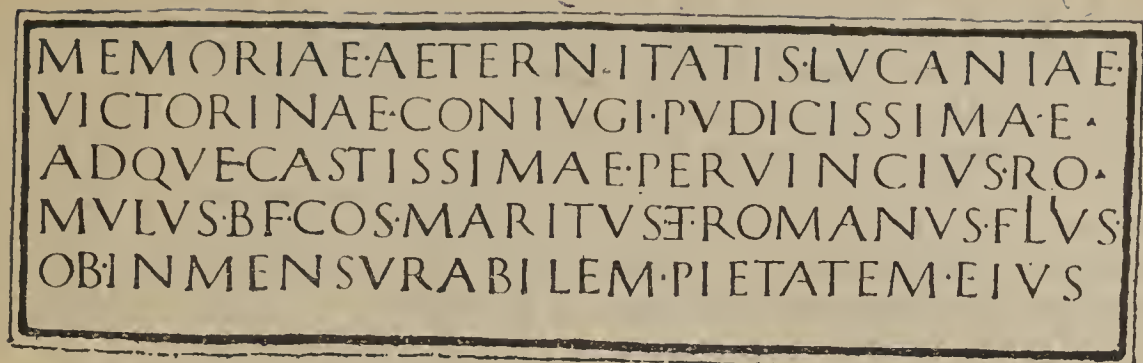 MEMORIAE·AETERN·ITATIS·LVCANIAE·
VICTORINAE·CONIVGI·PVDICISSIMA·E·
ADQVE·CASTISSIMAE·PERVINCIVS·RO·
MVLVS·BF·COS·MARITVS·ET·ROMANVS·FLVS·
OB·INMENSVRABILEM·PIETATEM·EIVS